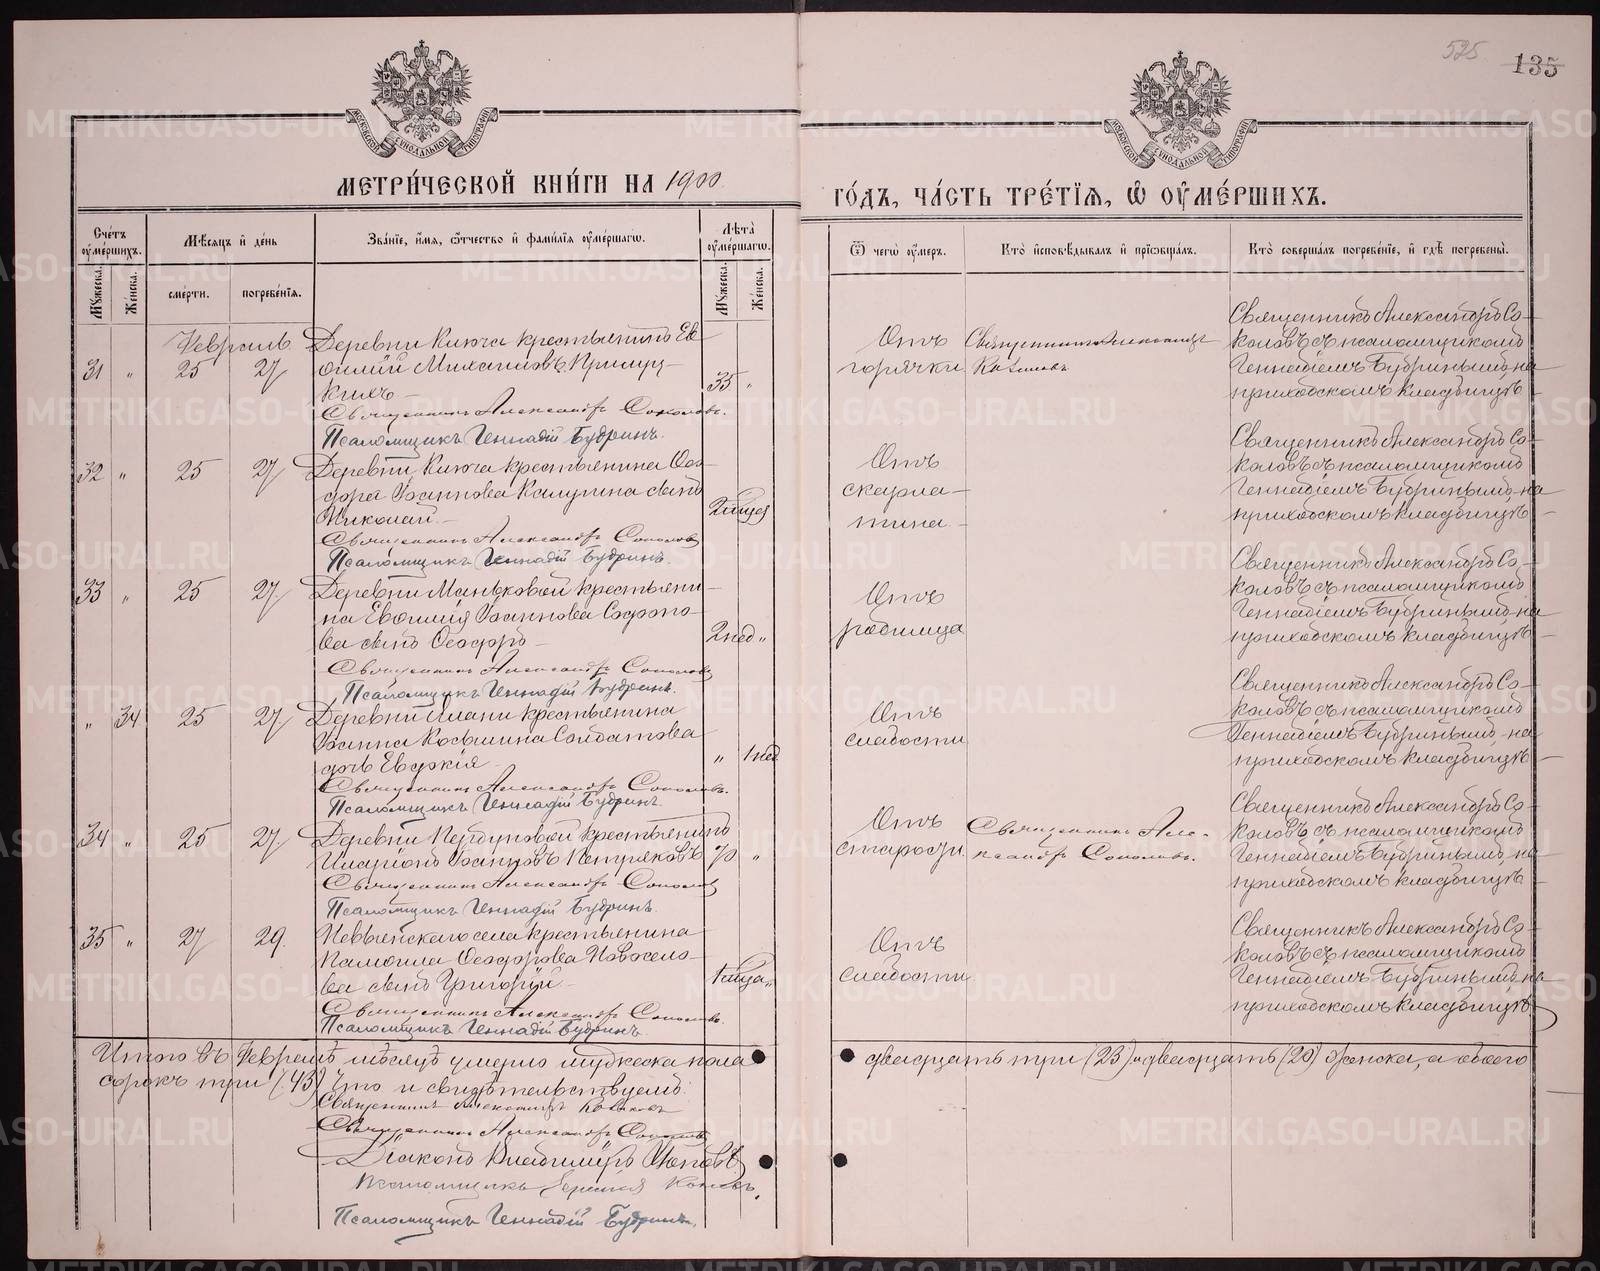 525
135
МОСКОВСКОЙ СѴНОДАЛЬНОЙ ТИПОГРАФІИ
МОСКОВСКОЙ СѴНОДАЛЬНОЙ ТИПОГРАФІИ
МЕТРИ́ЧЕСКОЙ КНИ́ГИ НА 1900
ГО́ДЪ, ЧА́СТЬ ТРЕ́ТІЯ, Ѡ҆ ОУ҆МЕ́РШИХЪ.
Сче́тъ оу҆ме́ршихъ.
Мѣсяцъ и҆ де́нь
Зва́ніе, и҆́мя, ѻ҆́тчество и҆ фами́лія оу҆ме́ршагѡ.
Лѣ́та оу҆ме́ршагѡ.
Ѿ чегѡ̀ оу҆́меръ.
Кто̀ и҆сповѣ́дывалъ и҆ прїѡбща́лъ.
Кто̀ соверша́лъ погребе́ніе, и҆ гдѣ̀ погребены̀.
Мꙋ́жеска.
Же́нска.
сме́рти.
погребе́нія.
Мꙋ́жеска.
Же́нска.
Февраль
31 „ 25 27
Деревни Ключа крестьянинъ Ев-
ѳимій Михаиловъ
35 „
Священникъ Александръ Соколовъ.
Псаломщикъ Геннадій Будринъ.
Отъ
горячки
Священникъ Александръ
Священникъ Александръ Со-
коловъ съ псаломщикомъ
Геннадіемъ Будринымъ на
приходскомъ кладбищѣ
32 „ 25 27
Деревни Ключа крестьянина Ѳео-
дора Іоаннова Калугина сынъ
Николай.
Священникъ Александръ Соколовъ
Псаломщикъ Геннадій Будринъ.
Отъ
скарла-
тина
Священникъ Александръ Со-
коловъ съ псаломщикомъ
Геннадіемъ Будринымъ на
приходскомъ кладбищѣ
33 „ 25 27
Деревни Маньковой крестьяни-
на Евѳимія Іоаннова Софоно-
ва сынъ Ѳеодоръ
2 нед „
Священникъ Александръ Соколовъ
Псаломщикъ Геннадій Будринъ.
Отъ
родимца
Священникъ Александръ Со-
коловъ съ псаломщикомъ
Геннадіемъ Будринымъ на
приходскомъ кладбищѣ
„ 34 25 27
Деревни крестьянина
Іоанна Косьмина Солдатова
дочь Евдокія
„ 1 нед
Священникъ Александръ Соколовъ.
Псаломщикъ Геннадій Будринъ.
Отъ
слабости
Священникъ Александръ Со-
коловъ съ псаломщикомъ
Геннадіемъ Будринымъ на
приходскомъ кладбищѣ
34 „ 25 27
Деревни крестьянинъ
Иларіонъ Іоанновъ Петуховъ
70 „
Священникъ Александръ Соколовъ
Псаломщикъ Геннадій Будринъ.
Отъ
старости
Священникъ Але-
ксандръ Соколовъ.
Священникъ Александръ Со-
коловъ съ псаломщикомъ
Геннадіемъ Будринымъ на
приходскомъ кладбищѣ
35 „ 27 29.
Невьянскаго села крестьянина
Памфила Ѳеодорова Новосело-
ва сынъ Григорій
Священникъ Александръ Соколовъ.
Псаломщикъ Геннадій Будринъ.
Отъ
слабости
Священникъ Александръ Со-
коловъ съ псаломщикомъ
Геннадіемъ Будринымъ на
приходскомъ кладбищѣ
Итого въ Февралѣ мѣсяцѣ умерло мужеска пола двадцать три (23) и двадцать (20) женска, а обоего
сорокъ три (43) Что и свидѣтельствуемъ:
Священникъ Александръ
Священникъ Александръ Соколовъ
Діаконъ Владиміръ Поповъ
Псаломщикъ
Псаломщикъ Геннадій Будринъ.